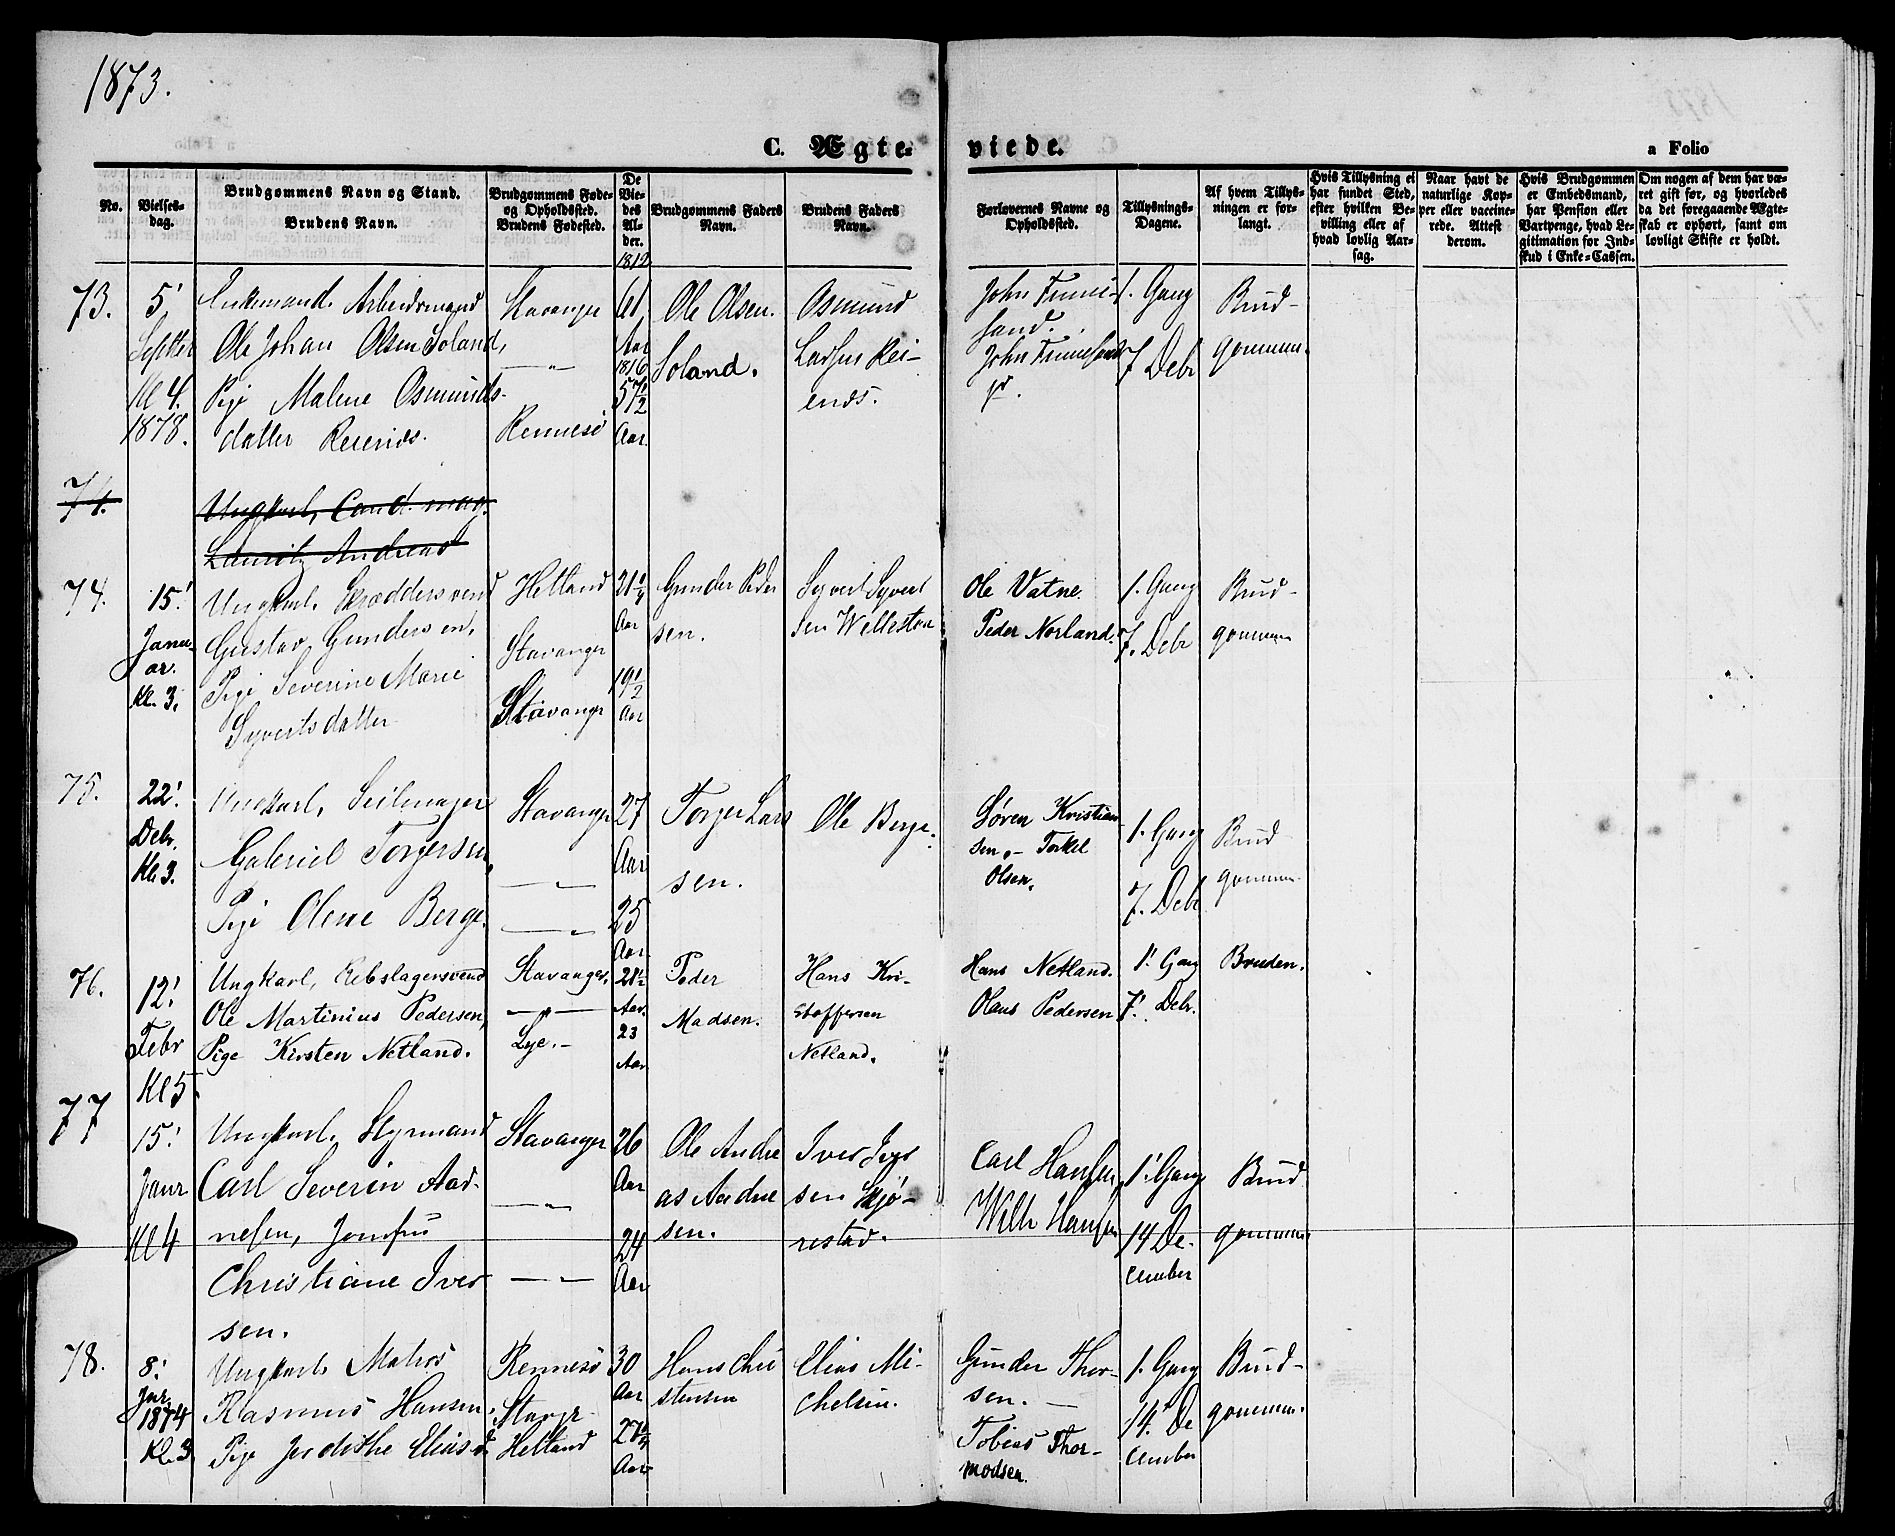 1873.
C. Ægte- viede. a Folio
No.
Vielses-
dag.
Brudgommens Navn og Stand.
Brudens Navn.
Brudgommens Føde-
og Opholdssted.
Brudens Fødested.
De
Vie-
des
Al-
der.
Brudgommens Faders
Navn.
Brudens Faders
Navn.
Forlovernes Navne og
Opholdssted.
Tillysnings-
Dagene.
Af hvem Tillys-
ningen er for-
langt.
Hvis Tillysning ei
har fundet Sted,
efter hvilken Be-
villing eller af
hvad lovlig Aar-
sag.
Naar havt de
naturlige Kop-
per eller vaccine-
rede. Attest
derom.
Hvis Brudgommen
er Embedsmand,
har Pension eller
Vartpenge, hvad Le-
gitimation for Ind-
skud i Enke-Cassen.
Om nogen af dem har væ-
ret gift før, og hvorledes
da det foregaaende Ægte-
skab er ophørt, samt om
lovligt Skifte er holdt.
73.
5'
Septber
Kl 4.
1878.
Enkemand. Arbeidsmand
Ole Johan Olsen Soland,
Pige Malene Osmunds-
datter Reienes.
Stavanger
—„—
Rennesö
1812
61
Aar
1816
57½
Aar.
Ole Olsen.
Soland.
Osmund
Larsen Rei-
enes.
John
sand.
John
1. Gang
7 Debr
Brud-
gommen.
74.
Ungkarl, Cand. mag.
Lauritz Andreas
74.
15'
Janu-
ar.
Kl. 3.
Ungkarl. Skræddersvend
Gustav Gundersen,
Pige Severine Marie
Syvertsdatter
Hetland
Stavanger
Stavanger
21¼
Aar
19½
Aar
Gunder Peder
sen.
Syvert Syvert
sen Wellestad
Ole Vatne.
Peder Norland.
1. Gang
7. Debr
Brud-
gommen
75.
22'.
Debr.
Kl. 3.
Ungkarl, Seilmager
Gabriel Torgersen,
Pige Olene Berge.
Stavanger
—„—
—„—
27
Aar
25
Aar
Torger Lars
sen.
Ole Berge.
Søren Kristian-
sen. – Torkel
Olsen.
1. Gang
7. Debr
Brud
gommen
76.
12'.
Febr
Kl 5.
Ungkarl, Rebslagersvend
Ole Martinius Pedersen,
Pige Kirsten Netland.
Stavanger.
—„—
Lye.–
21½
Aar.
23
Aar
Peder
Madsen.
Hans Kri-
stoffersen
Netland.
Hans Netland.
Olaus Pedersen
1'. Gang
7'. Debr.
Bruden.
77
15'
Janr
Kl 4
Ungkarl. Styrmand
Carl Severin Aad-
nesen, Jomfru
Christiane Iver
sen.
Stavanger
—„—
—„—
26
Aar
24
Aar
Ole Andre
as Aadne
sen.
Iver Iver
sen Skjø-
restad.
Carl Hansen,
Wilh Hansen
1'. Gang
14 De-
cember
Brud
gommen.
78.
8'
Jnr.
1874
Kl. 3
Ungkarl. Matros
Rasmus Hansen.
Pige Jordithe Eliasd
Rennesö
Stavgr
Hetland
30
Aar
27¼
Aar
Hans Chri
stensen
Elias Mi-
chelsen.
Gunder Thor-
sen. —
Tobias Thor-
modsen.
1. Gang
14. De
cember
Brud-
gommen.